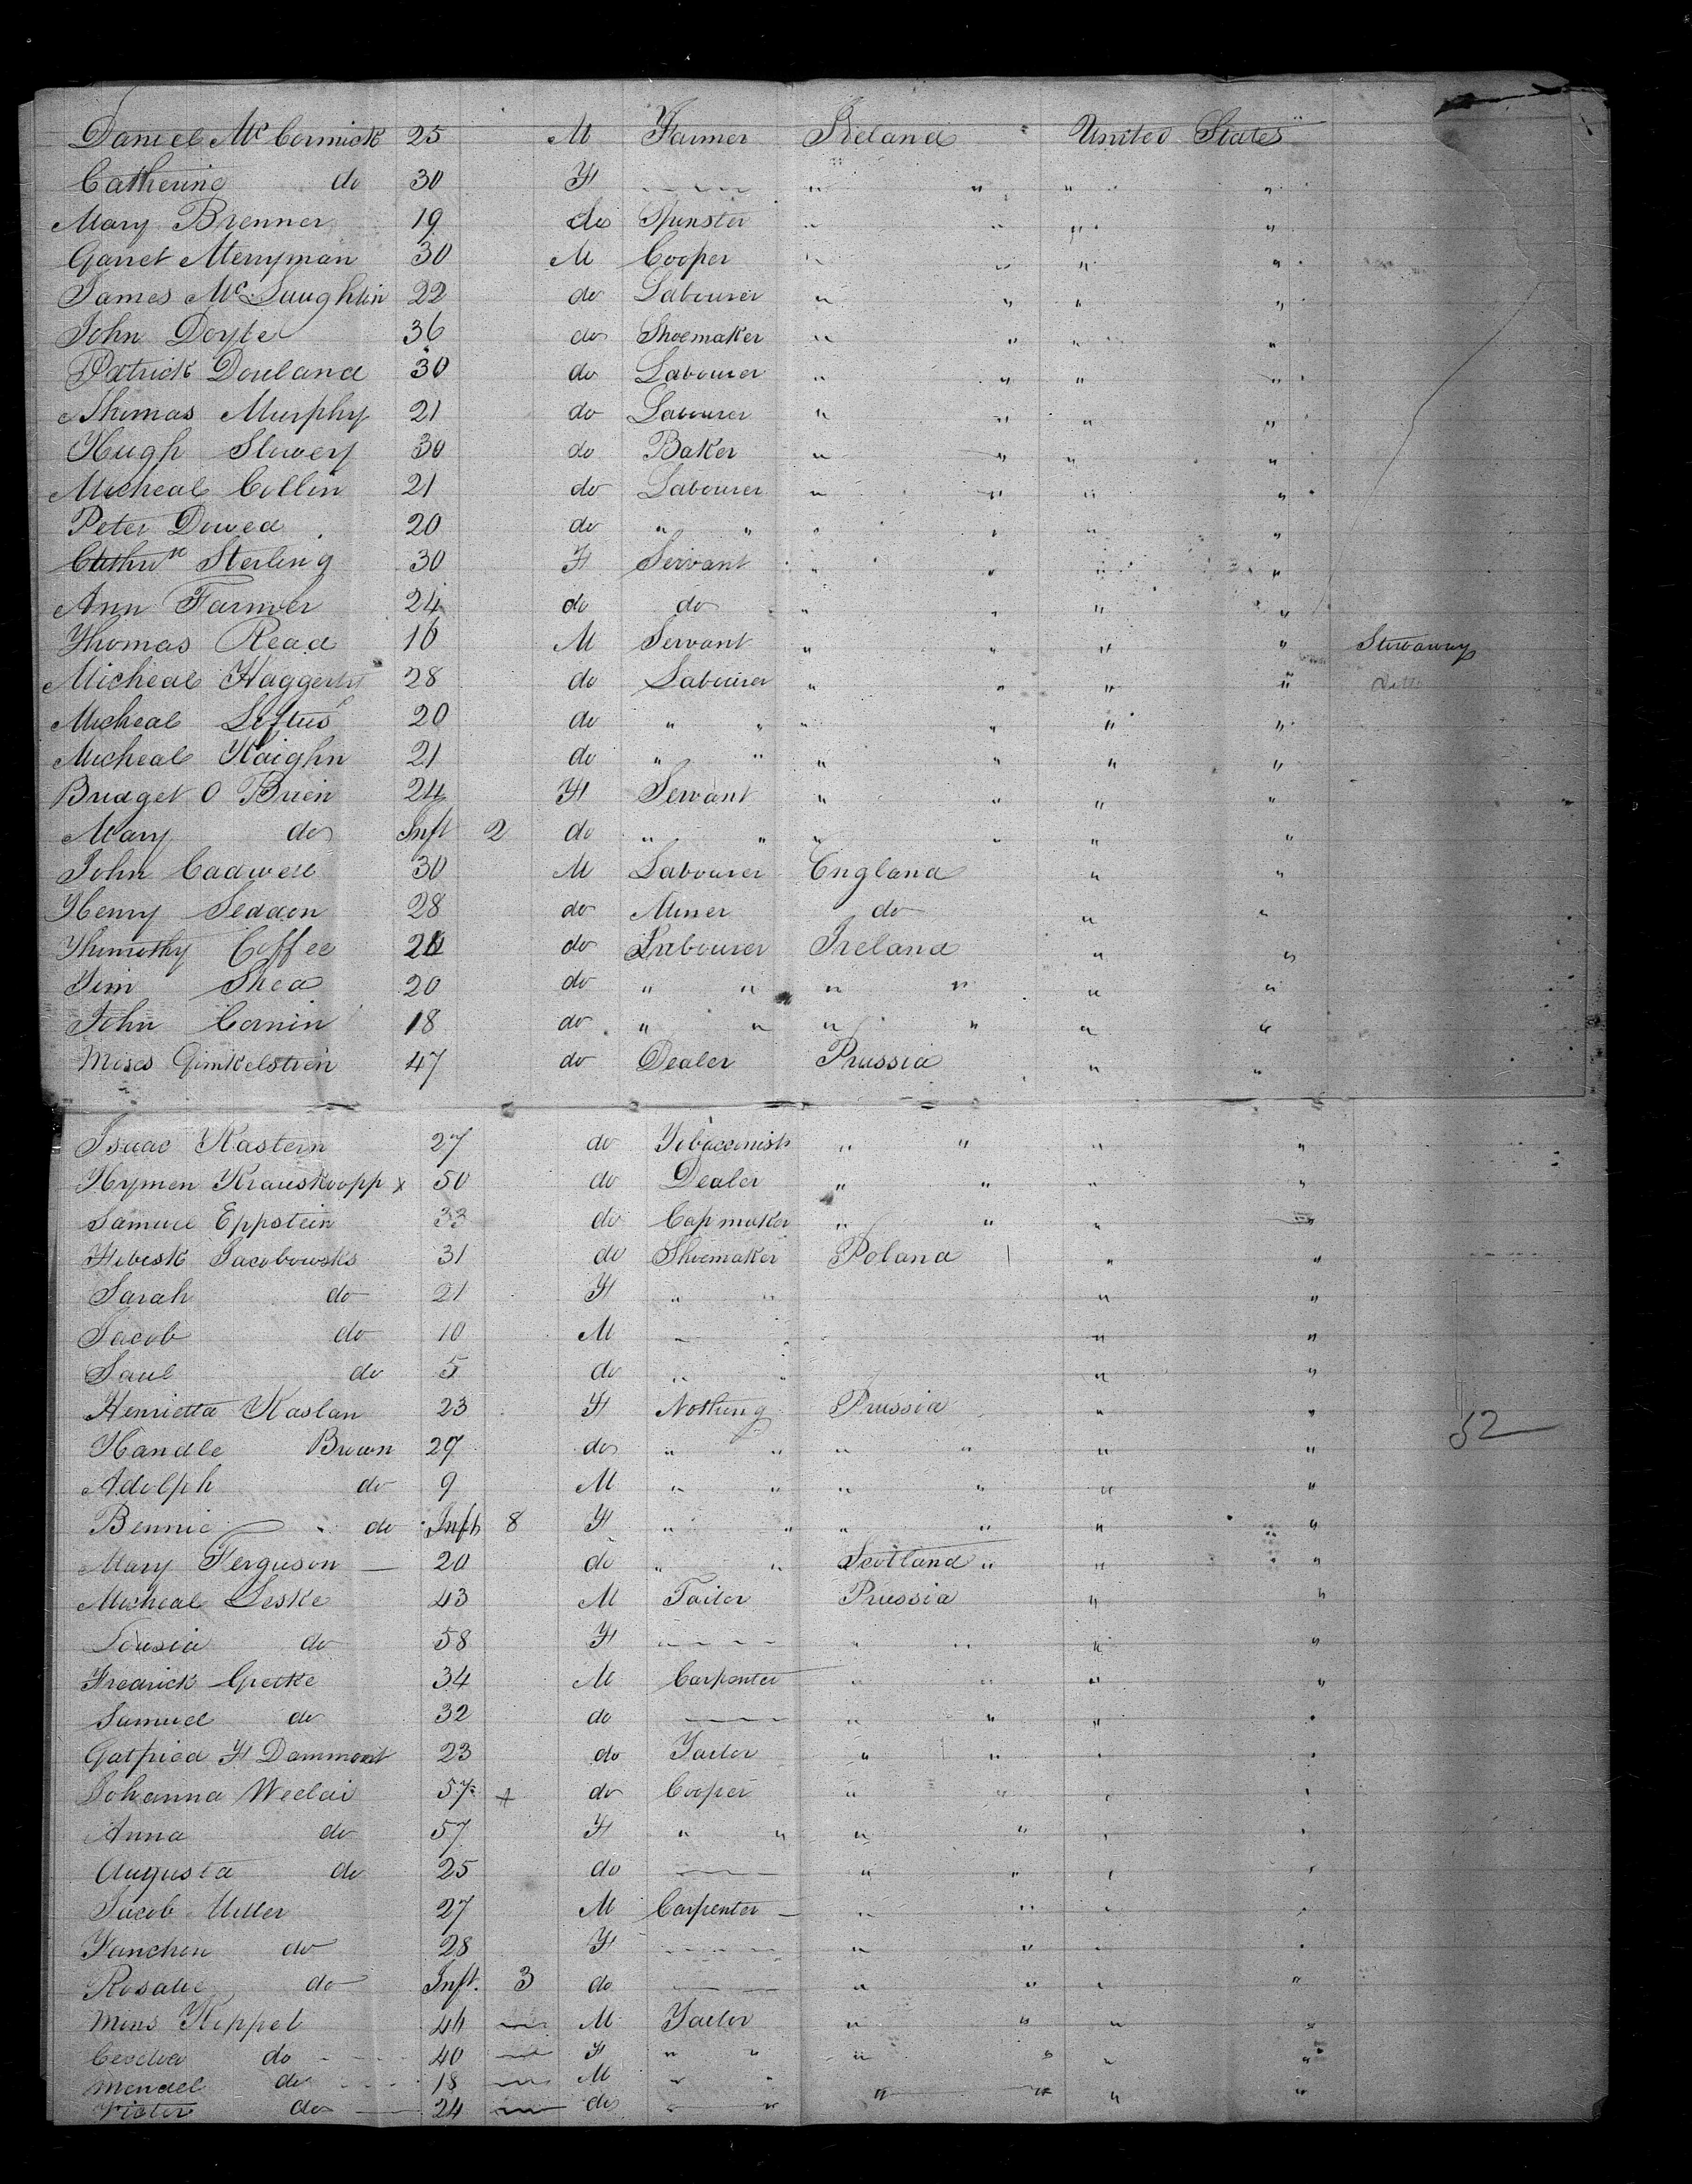 Daniel McCormick 25 M Farmer Ireland " United States "
Catherine do 30 F " " " "
Mary Brenner 19 do Spinster " " " "
Garret Merryman 30 M Cooper " " " "
James McLaughlin 22 do Labourer " " " "
John Doyle 36 do Shoemaker " " " "
Patrick Douland 30 do Labourer " " " "
Thomas Murphy 21 do Labourer " " " "
Hugh Slowey 30 do Baker " " " "
Micheal Collin 21 do Labourer " " " "
Peter Dowed 20 do " " " " " "
Sterling 30 F Servant " " " "
Ann Farmer 24 do do " " " "
Thomas Read 16 M Servant " " " " Stowaway
Micheal Haggerty 28 do Labourer " " " " Ditto
Micheal Loftus 20 do " " " " " "
Micheal Kaighn 21 do " " " " " "
Bridget O Brien 24 F Servant " " " "
Mary do Inft 2 do " " " " " "
John Cadwell 30 M Labourer England " "
Henry Seddon 28 do Miner do " "
Thimothy Coffee do Labourer Ireland " "
Tim Shea 20 do " " " " " "
John Cornin 18 do " " " " " "
Moses Gimkelstien 47 do Dealer Prussia " "
Isaac Kastern 27 do Tobacconist " " " "
Hymen Krauskoopp x 50 do Dealer " " " "
Samuel Eppstein 33 do Cap maker " " " "
Jacobowsks 31 do Shoemaker Poland " "
Sarah do 21 F " " " "
Jacob do 10 M " " " "
Saul do 5 do " " " "
Henrietta Kaslan 23 F Nothing Prussia " "
Handle Brown 29 do " " " " " "
52
Adolph do 9 M " " " " " "
Bennie do Inft 8 F " " " " " "
Mary Ferguson — 20 do " " Scotland " " "
Micheal Leske 43 M Tailor Prussia " "
Lousia do 58 F " " " "
Fredrick Gretke 34 M Carpenter " " " "
Samuel do 32 do — " " " "
Gatfried F Dammont 23 do Tailor " " " "
Johanna Weclai 57 + do Cooper " " " "
Anna do 57 F " " " " " "
Augusta do 25 do — " " " "
Jacob Miller 27 M Carpenter — " " " "
Fanchen do 28 F " " " "
Rosalie do Inft. 3 do " " " "
Mins Keppel M Tailor " " " "
do 40 F " " " " " "
Mendel do 18 M " "
do 24 do " " " " " "